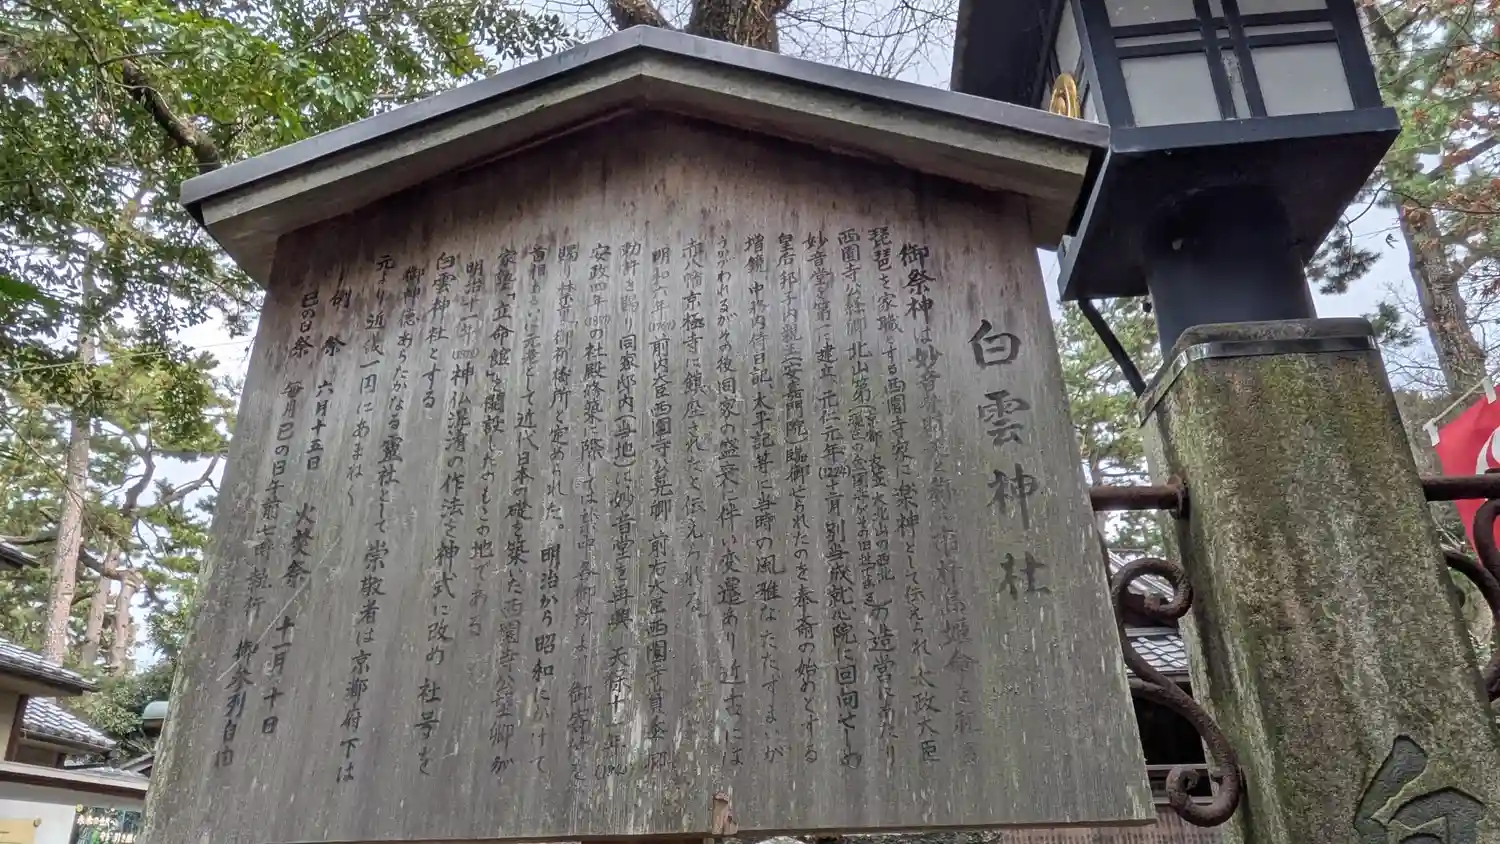 白雲神社
御祭神は妙音弁財天と称し市杵島姫命を祀る
琵琶を家職とする西園寺家に楽神として伝えられ太政大臣
西園寺公経卿北山第(京都 衣笠大北山の西北 の金閣寺がその旧世である)の造営にあたり
妙音堂を第一に建立、元仁元年(1224)十二月 別当成就心院に回向せしめ
皇后邦子内親王(安嘉門院)臨御せられたのを奉斎の始めとする
増鏡、中務内侍日記、太平記等に当時の風雅なたたずまいが
うかがわれるがその後同家の盛衰に伴い変遷あり 近古には
赤八幡京極寺に鎮座されたと伝えられる。
明和六年(1769)前内大臣西園寺公晃卿、前右大臣西園寺賞季卿
勅許を賜り 同家邸内(当地)に妙音堂を再興、天保十一年
安政四年(1857)の社殿修築に際しては禁中各御所より 御寄付を
賜り 禁裏御祈祷所と定められた。 明治から昭和にかけて
首相あるいは元老として近代日本の礎を築いた西園寺公望卿が
家塾「立命館」を開設したのもこの地である
明治十一年(1878)神仏混淆の作法を神式に改め 社号を
白雲神社とする
御神徳あらたかなる霊社として崇敬者は京都府下は
元より近畿一円にあまねく
例祭 六月十五日 火焚祭 十一月十日
巳の日祭 毎月巳の日午前七時執行 御参列自由